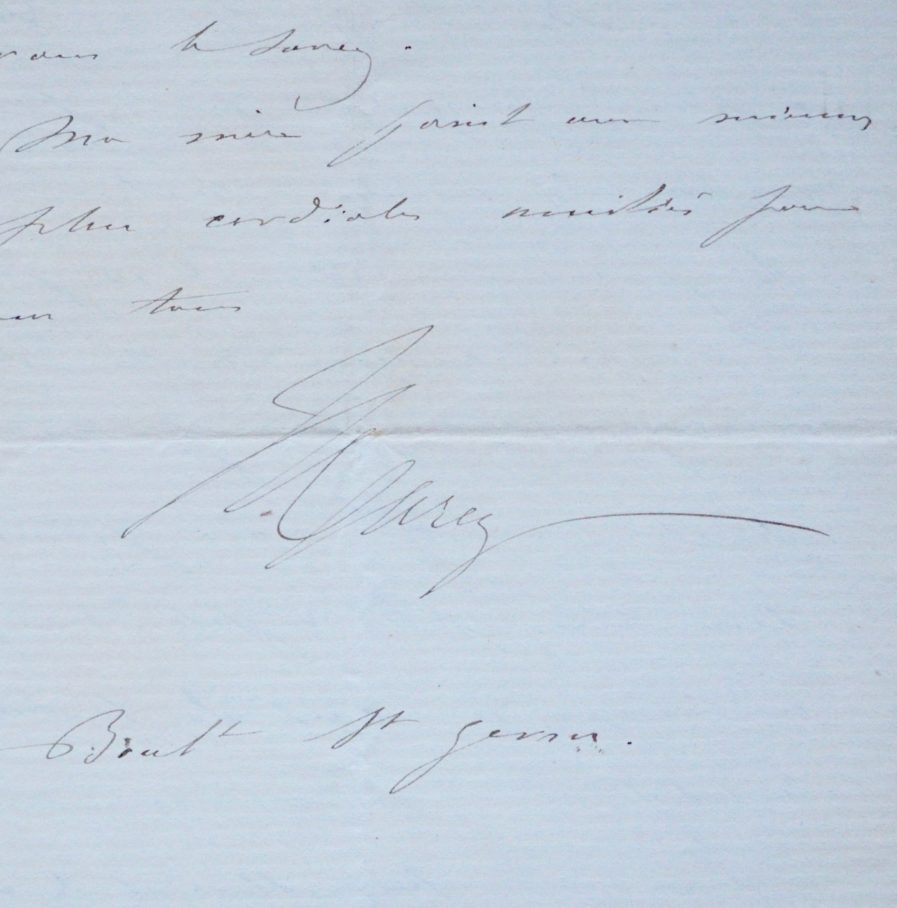 vous le savez.
Ma mère joint aux miennes
plus cordiales amitiés pour
tous
Marey
Boult St germ.